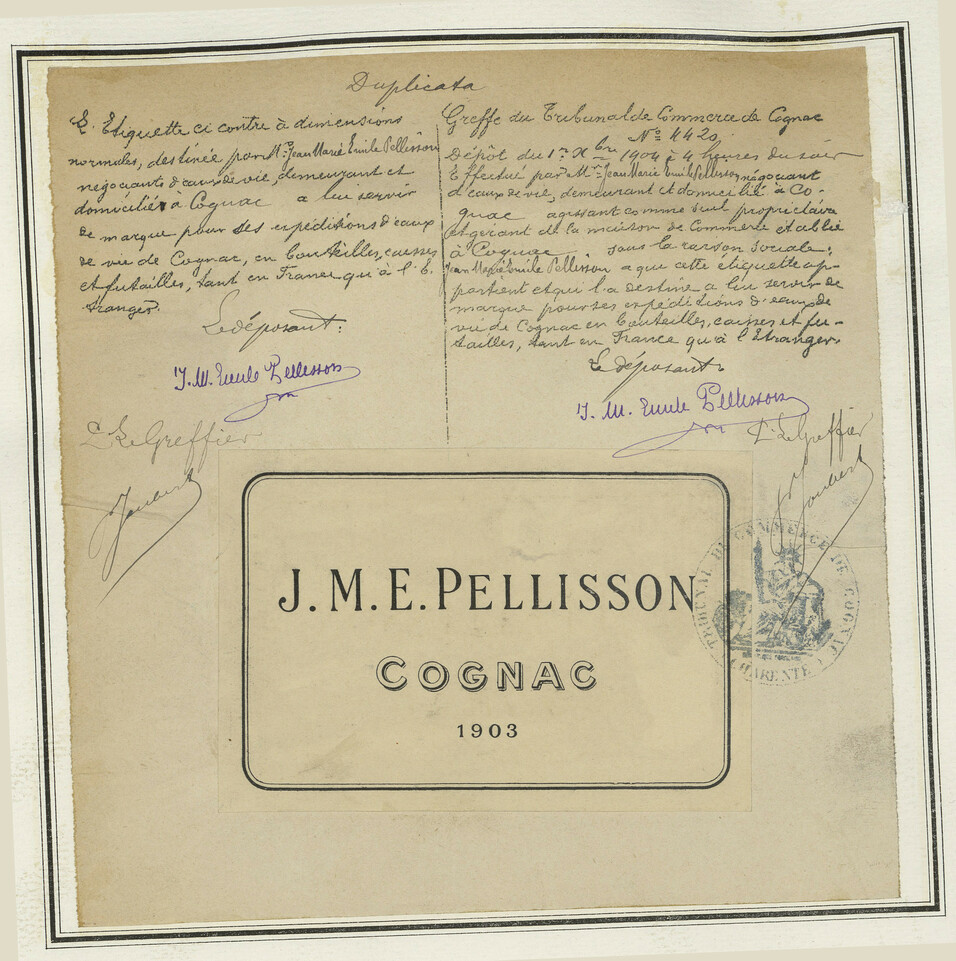 Duplicata
Etiquette ci contre à dimensions
normales, destinée par Mr Jean Marie Emile Pellisson
négociants d'eaux de vie, demeurant et
domiciliés à Cognac a lui servir
de marque pour ses expéditions d'eaux
de vie de Cognac, en bouteilles, caisses
et futailles, tant en France qu'à l'E-
tranger.
Le déposant:
J. M. Emile Pellisson
Le Greffier
Joubert
Greffe du Tribunal de Commerce de Cognac
No 4420.
Dépôt du 1er Xbre 1904 à 4 heures du soir
Effectué par Mr Jean Marie Emile Pellisson négociant
d'eaux de vie, demeurant et domicilié à Co-
gnac agissant comme seul propriétaire
et gérant de la maison de Commerce établie
à Cognac sous la raison sociale:
Jean Marie Emile Pellisson a qui cette étiquette ap-
partient et qui l'a destine a lui servir de
marque pour ses expéditions d'eaux de
vie de Cognac en bouteilles, caisses et fu-
tailles, tant en France qu'à l'Etranger.
Le déposant:
J. M. Emile Pellisson
Le Greffier
Joubert
J. M. E. PELLISSON
COGNAC
1903
TRIBUNAL DE COMMERCE DE COGNAC
CHARENTE